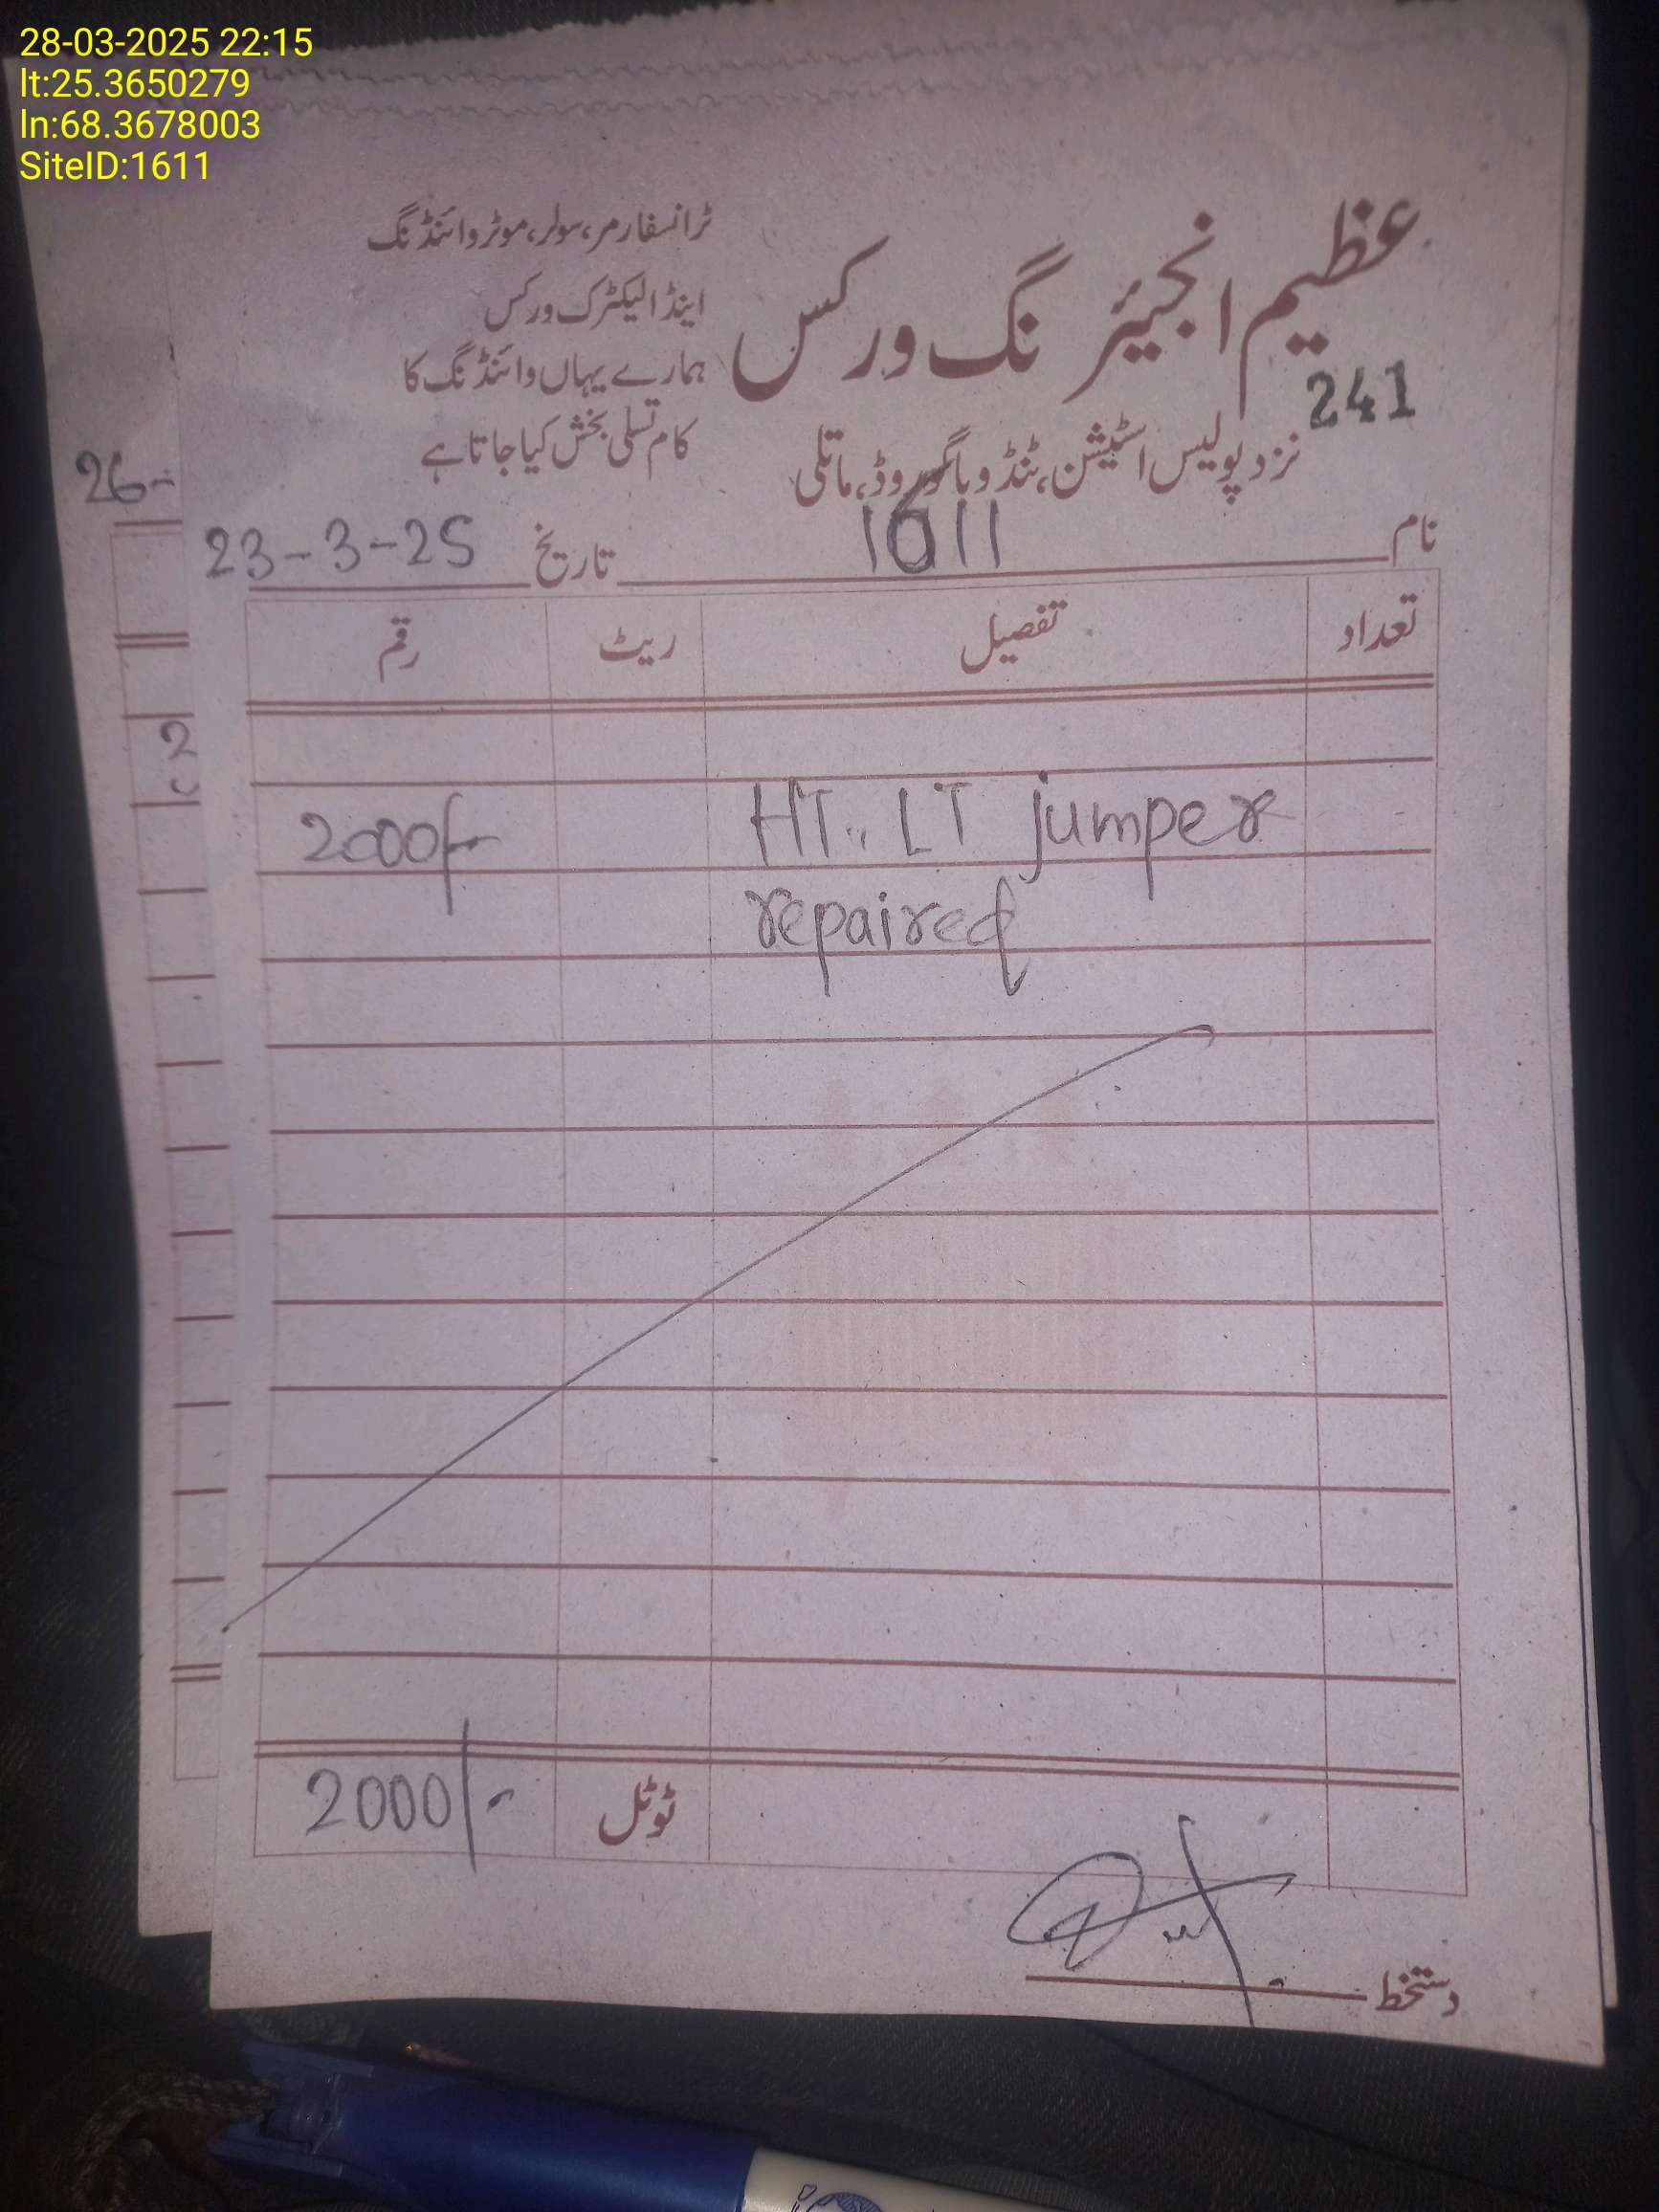 28-03-2025 22:15
lt:25.3650279
ln:68.3678003
SiteID:1611
عظیم انجیئرنگ ورکس
ٹرانسفارمر، سولر، موٹر وائنڈنگ
اینڈ الیکٹرک ورکس
ہمارے یہاں وائنڈنگ کا
کام تسلی بخش کیا جاتا ہے
241
نزد پولیس اسٹیشن، ٹنڈو باگو روڈ، ماتلی
26-
نام 1611 تاریخ 23-3-25
تعداد تفصیل ریٹ رقم
2
HT., LT jumper 2000/-
repaired
ٹوٹل 2000/-
دستخط